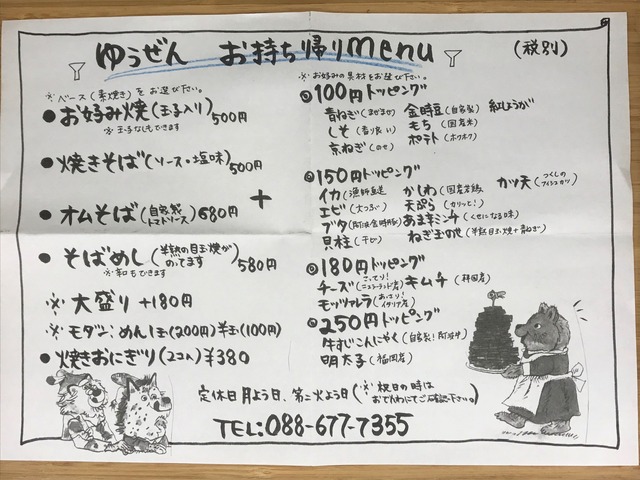 ゆうぜん お持ち帰りmenu
(税別)
※ベース(素焼き)をお選び下さい。
●お好み焼(玉子入り)500円
※玉子なしもできます
●焼きそば(ソース・塩味)500円
●オムそば(自家製トマトソース)680円
●そばめし(半熟の目玉焼がのってます)580円
※辛口もできます
※大盛り +180円
※モダン:めん1玉(200円)半玉(100円)
●焼きおにぎり(2コ入)¥380
+
※お好みの具材をお選び下さい。
◎100円トッピング
青ねぎ(まぜまぜ) 金時豆(自家製) 紅しょうが
しそ(香り良い) もち(国産米)
京ねぎ(のせ) ポテト(ホクホク)
◎150円トッピング
イカ(漁師直送) かしわ(国産若鶏) カツ天(つくしのフィッシュカツ)
エビ(大つぶ) 天ぷら(カリッと!)
ブタ(阿波金時豚) あま辛ミンチ(くせになる味)
貝柱(干し) ねぎ玉のせ(半熟目玉焼+青ねぎ)
◎180円トッピング
チーズ(こってり!ニュージーランド産) キムチ(韓国産)
モッツァレラ(あっさり!イタリア産)
◎250円トッピング
牛すじこんにゃく(自家製:阿波牛)
明太子(福岡産)
定休日月よう日、第二火よう日(※祝日の時はおでんわにてご確認下さい。)
TEL:088-677-7355